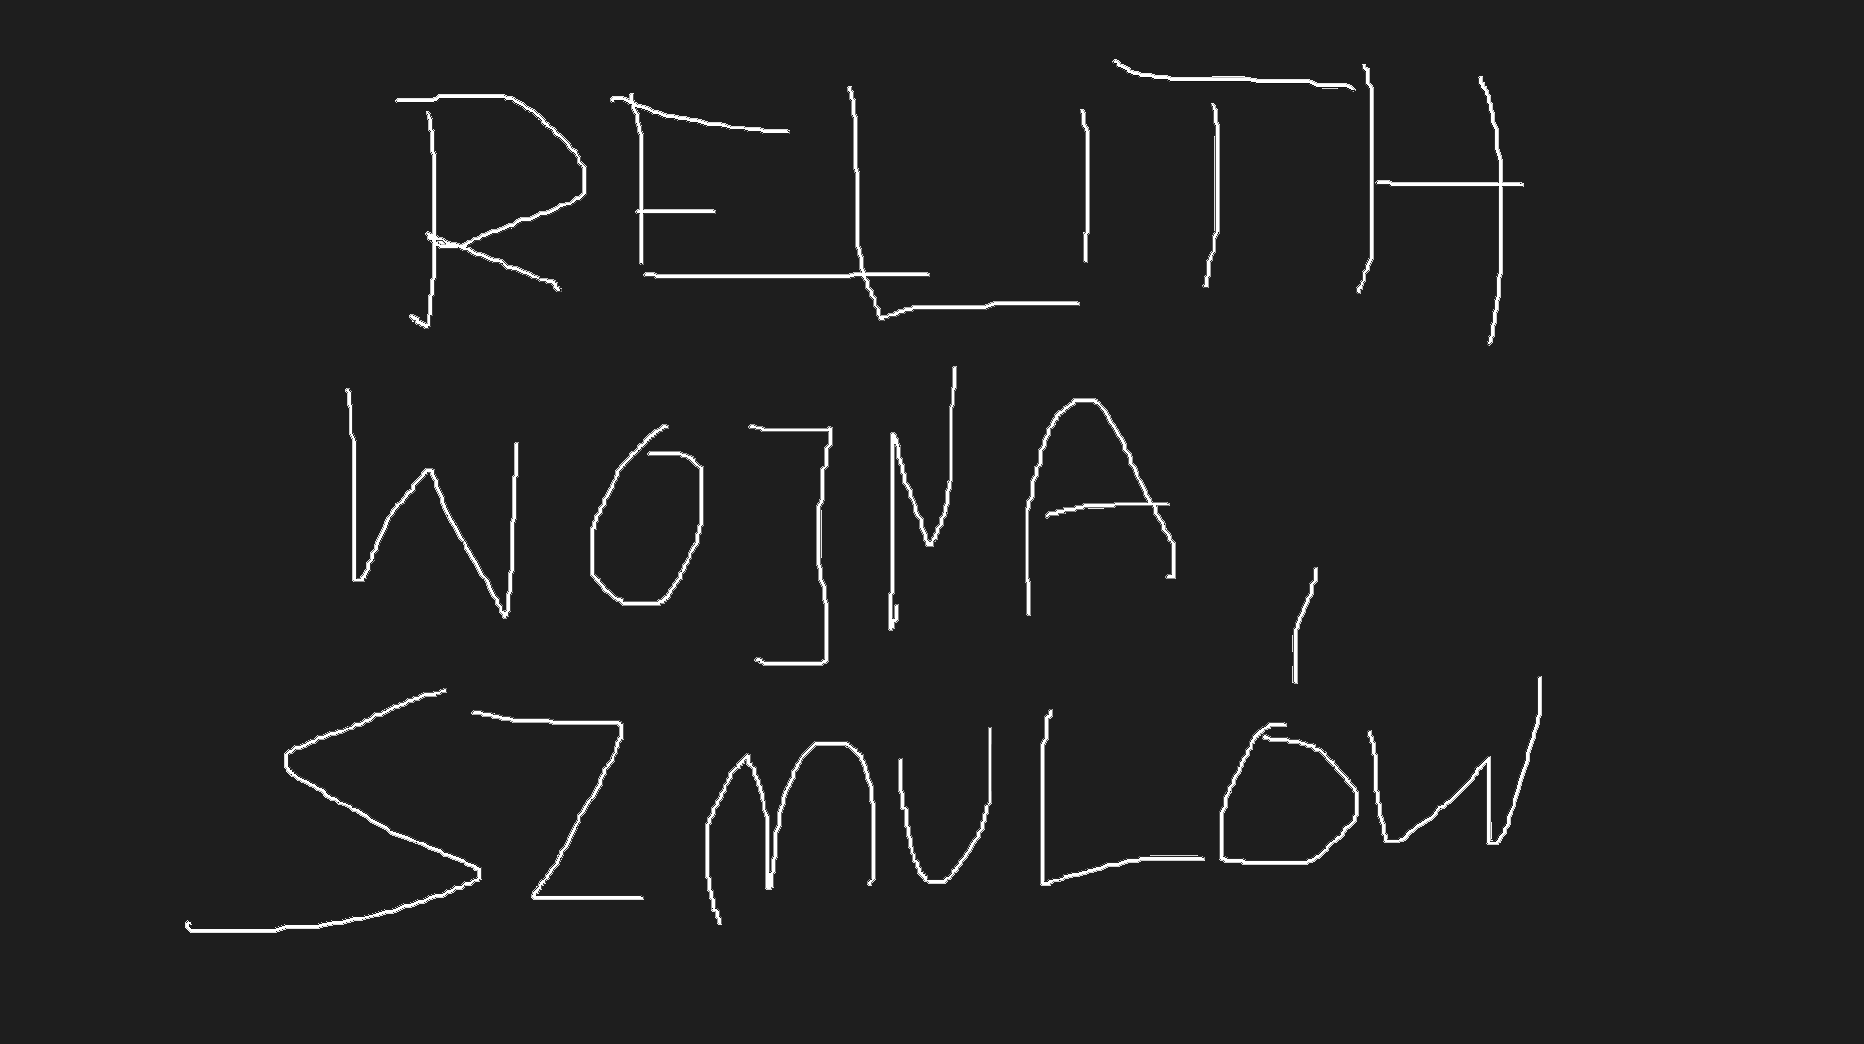 RELITH
WOJNA
SZMULÓW